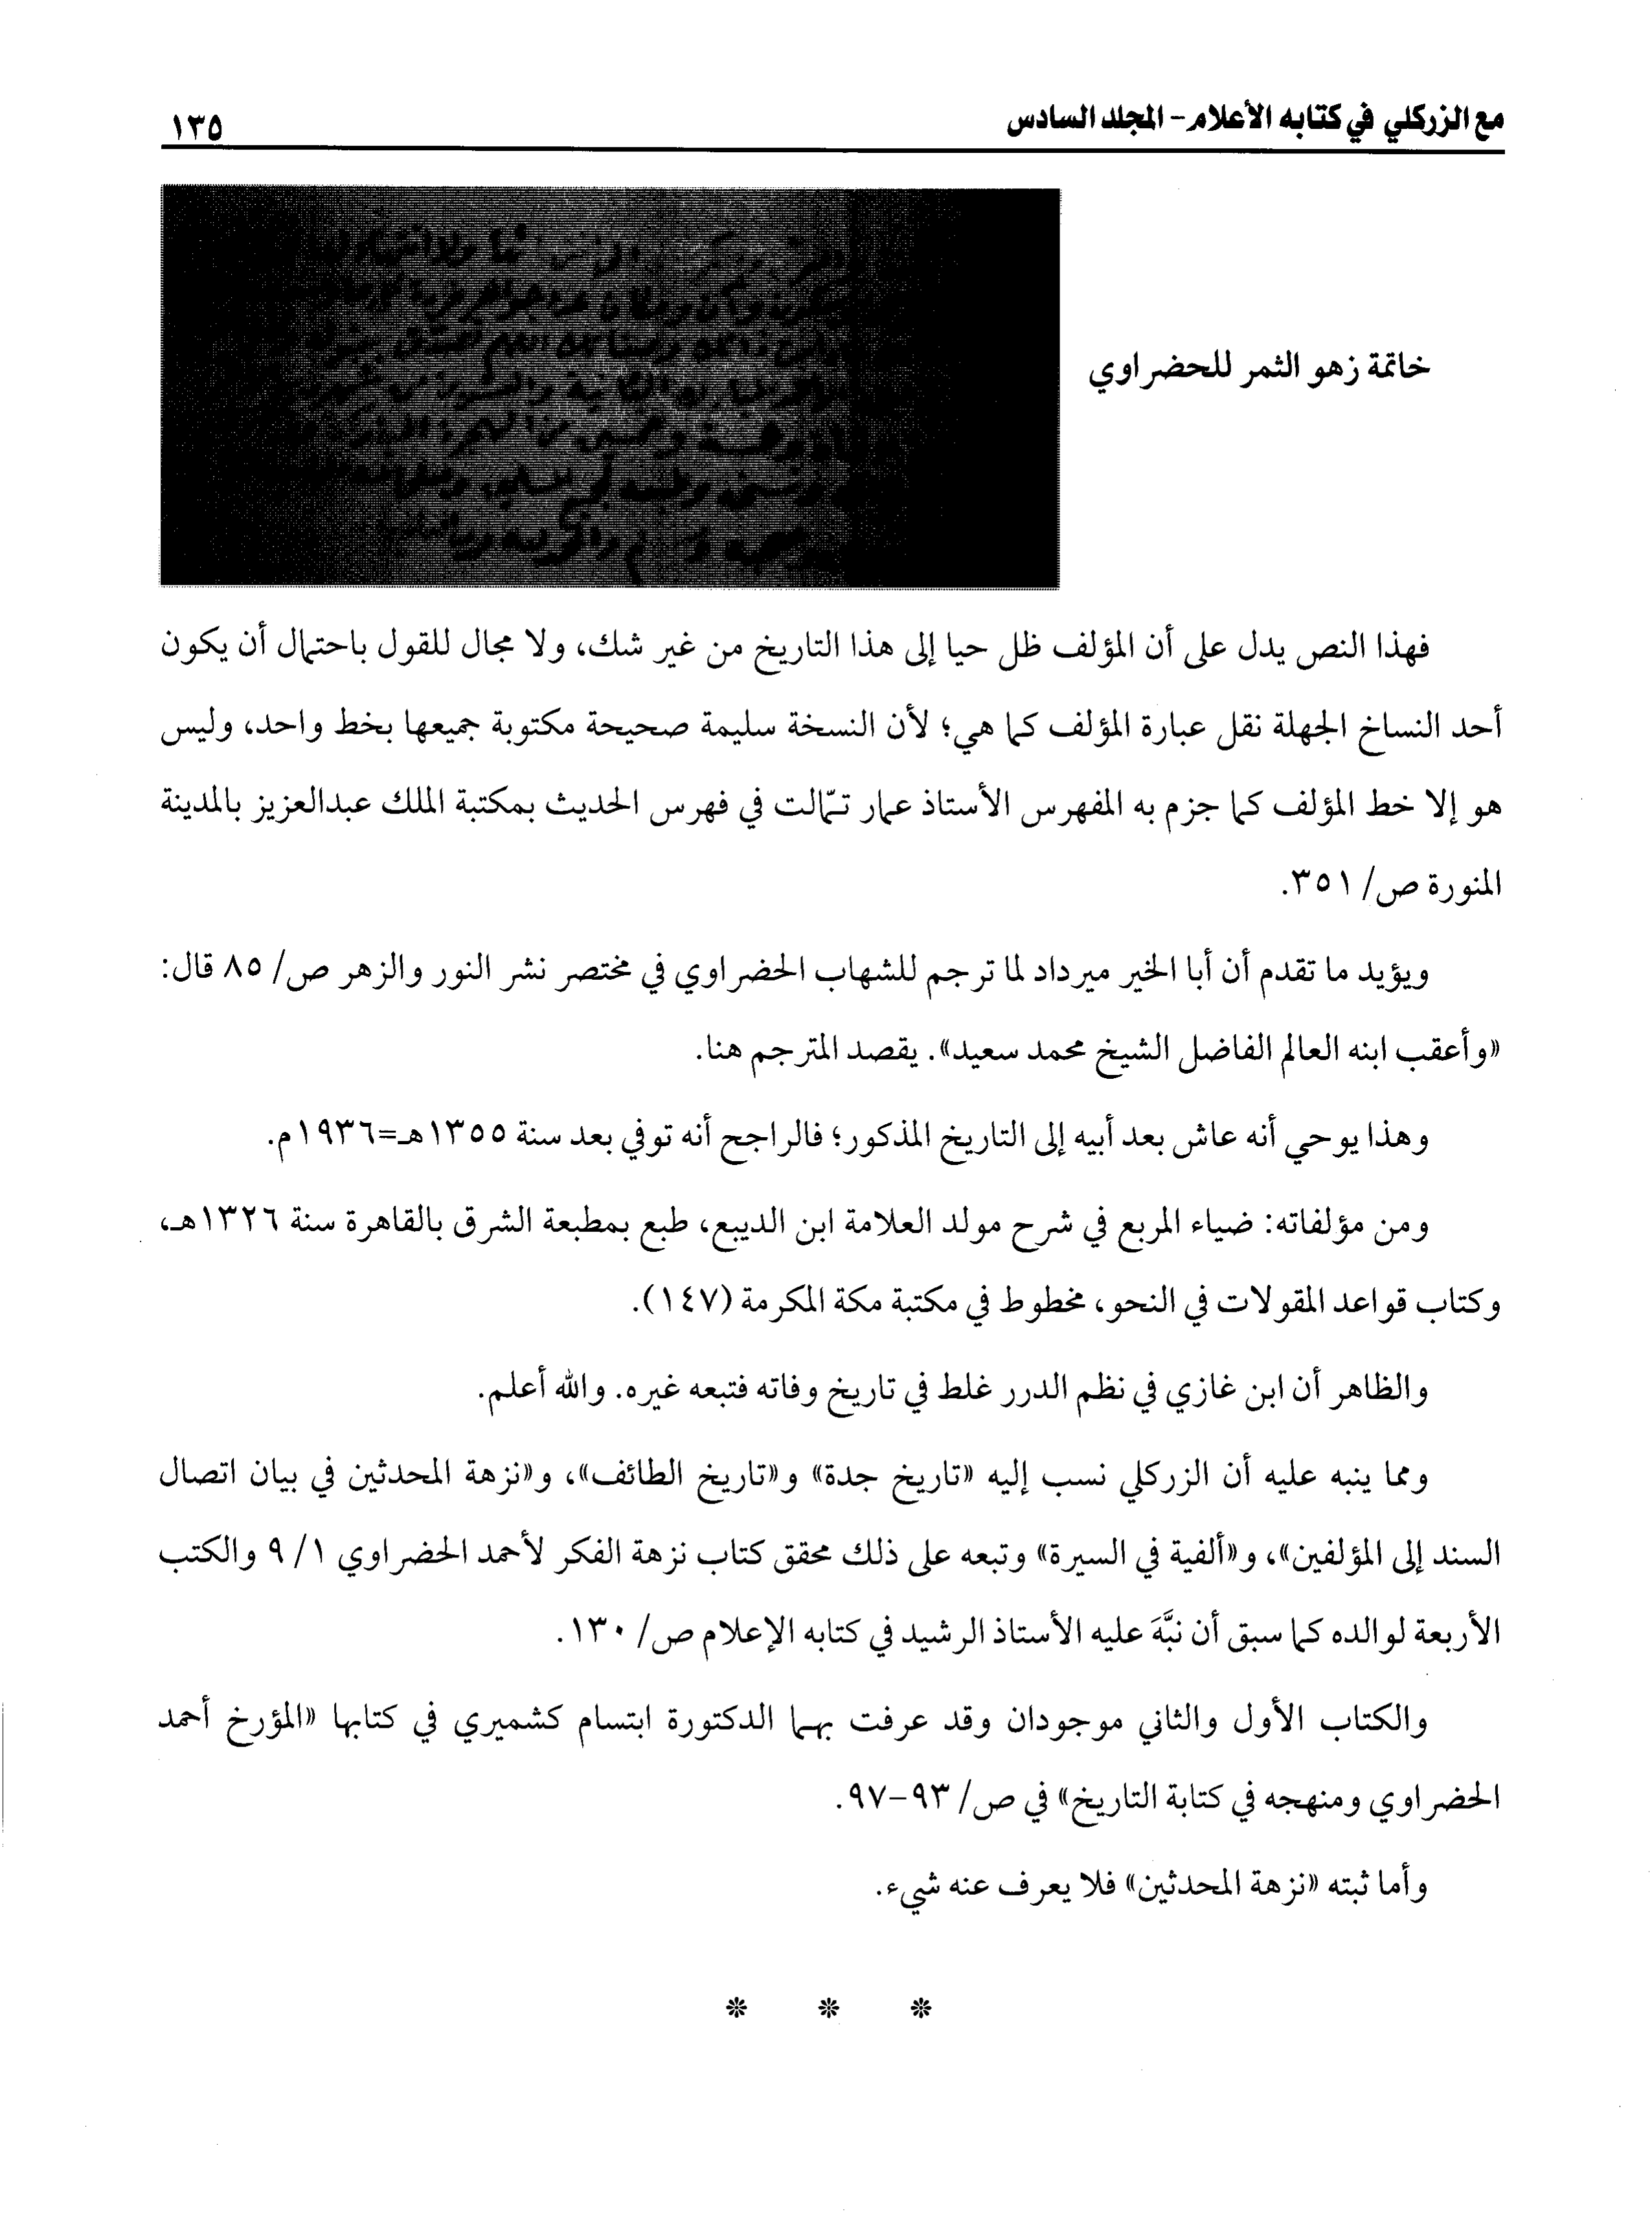 مع الزركلي في كتابه الأعلام - المجلد السادس
١٣٥
خاتمة زهو الثمر للحضراوي
فهذا النص يدل على أن المؤلف ظل حيا إلى هذا التاريخ من غير شك، ولا مجال للقول باحتمال أن يكون
أحد النساخ الجهلة نقل عبارة المؤلف كما هي؛ لأن النسخة سليمة صحيحة مكتوبة جميعها بخط واحد، وليس
هو إلا خط المؤلف كما جزم به المفهرس الأستاذ عمار تمّالت في فهرس الحديث بمكتبة الملك عبدالعزيز بالمدينة
المنورة ص/ ٣٥١.
ويؤيد ما تقدم أن أبا الخير ميرداد لما ترجم للشهاب الحضراوي في مختصر نشر النور والزهر ص/ ٨٥ قال:
«وأعقب ابنه العالم الفاضل الشيخ محمد سعيد». يقصد المترجم هنا.
وهذا يوحي أنه عاش بعد أبيه إلى التاريخ المذكور؛ فالراجح أنه توفي بعد سنة ١٣٥٥هـ=١٩٣٦م.
ومن مؤلفاته: ضياء المربع في شرح مولد العلامة ابن الديبع، طبع بمطبعة الشرق بالقاهرة سنة ١٣٢٦هـ،
وكتاب قواعد المقولات في النحو، مخطوط في مكتبة مكة المكرمة (١٤٧).
والظاهر أن ابن غازي في نظم الدرر غلط في تاريخ وفاته فتبعه غيره. والله أعلم.
ومما ينبه عليه أن الزركلي نسب إليه «تاريخ جدة» و«تاريخ الطائف»، و«نزهة المحدثين في بيان اتصال
السند إلى المؤلفين»، و«ألفية في السيرة» وتبعه على ذلك محقق كتاب نزهة الفكر لأحمد الحضراوي ١/ ٩ والكتب
الأربعة لوالده كما سبق أن نبَّهَ عليه الأستاذ الرشيد في كتابه الإعلام ص/ ١٣٠.
والكتاب الأول والثاني موجودان وقد عرفت بهما الدكتورة ابتسام كشميري في كتابها «المؤرخ أحمد
الحضراوي ومنهجه في كتابة التاريخ» في ص/ ٩٣-٩٧.
وأما ثبته «نزهة المحدثين» فلا يعرف عنه شيء.
* * *